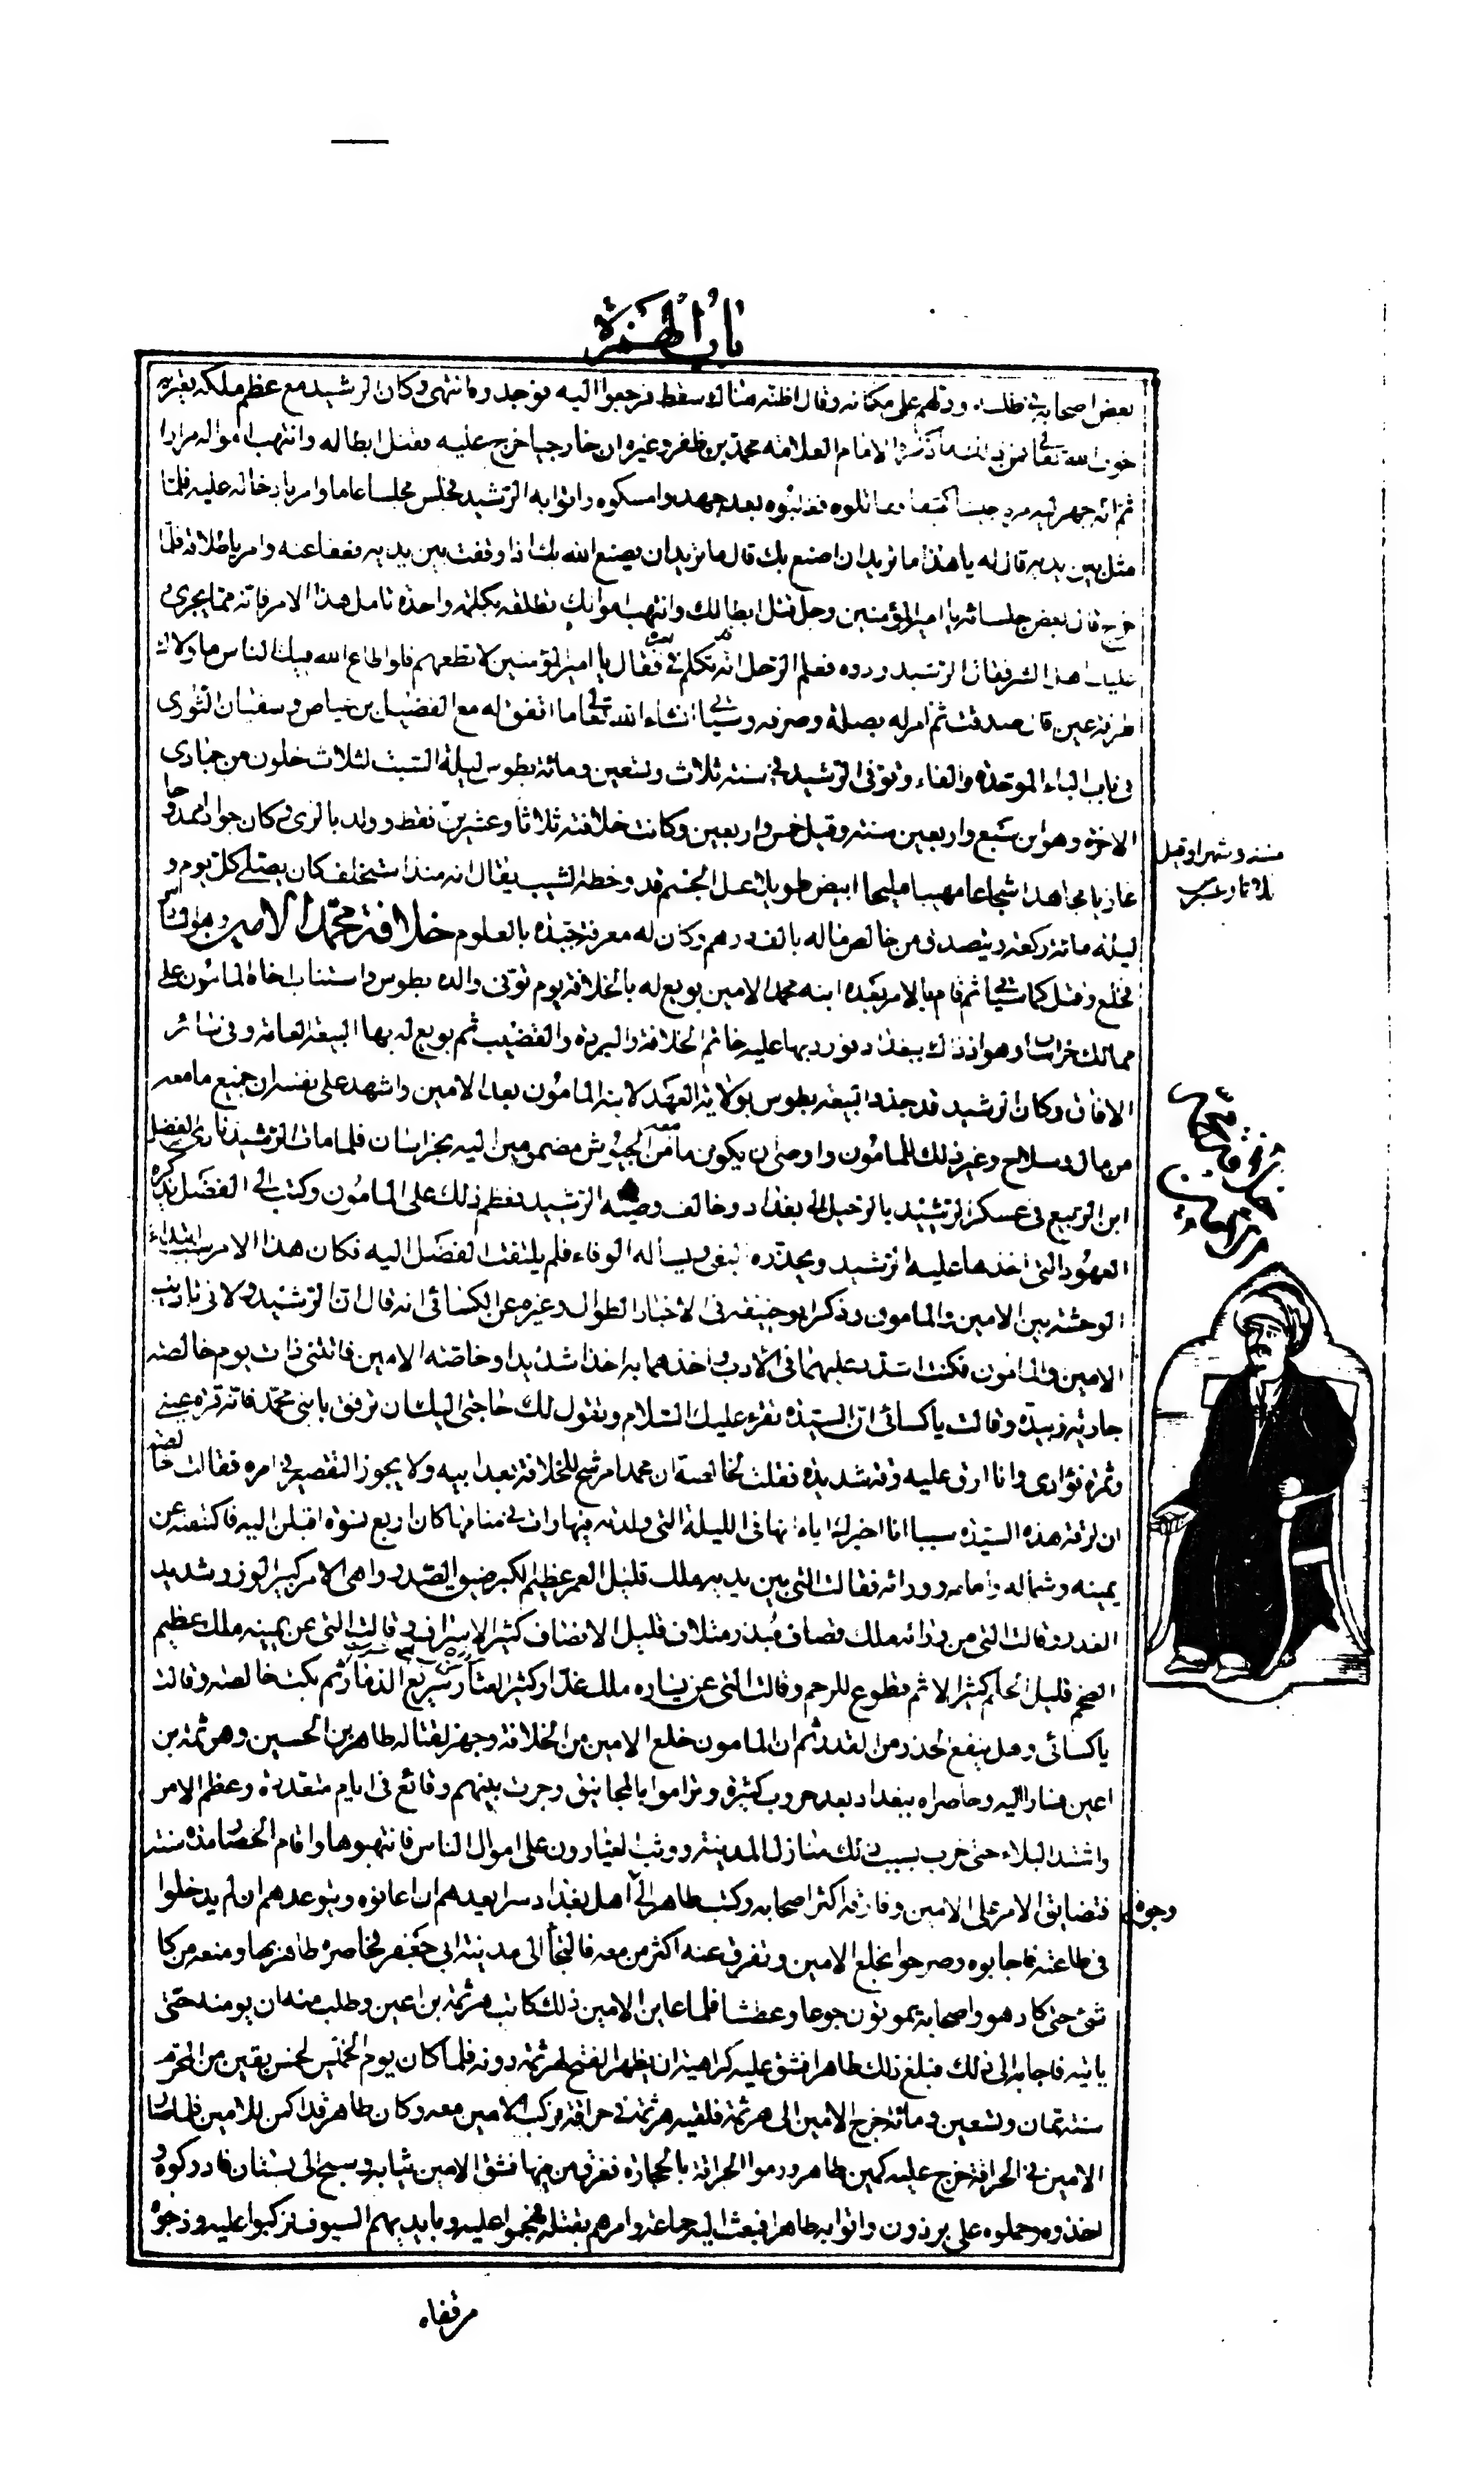 باب الهمزة
بعض اصحابه في طلبه ودلهم على مكانه وقال اظنه هناك سقط فرجعوا اليه فوجدوه انتهى وكان الرشيد مع عظم ملكه يعتريه
خوف الله تعالى فمن ذلك ما ذكره الامام العلامة محمد بن ظفر وغيره ان خارجيا خرج عليه فقتل ابطاله وانتهب امواله مرارا
ثم انه جهز اليه مرة جيشا كثيفا فقاتلوه فغلبوه بعد جهد وامسكوه واتوا به الرشيد فجلس مجلسا عاما وامر بادخاله عليه فلما
مثل بين يديه قال له يا هذا ما تريد ان اصنع بك قال ما تريد ان يصنع الله بك اذا وقفت بين يديه فعفا عنه وامر باطلاقه فلما
خرج قال بعض جلسائه يا امير المؤمنين رجل قتل ابطالك وانتهب اموالك تطلقه بكلمة واحدة تامل هذا الامر فانه مما يجرى
عليك هذا الشر فقال الرشيد ردوه فعلم الرجل انه تكلم فيه فقال يا امير المؤمنين لا تطعهم فلو اطاع الله فيك الناس ما ولاك
طرفة عين قال صدقت ثم امر له بصلة وصرفه وسياتي انشاء الله تعالى ما اتفق له مع الفضيل بن عياض وسفيان الثورى
فى باب الباء الموحدة والفاء وتوفى الرشيد في سنة ثلاث وتسعين ومائة بطوس ليلة السبت لثلاث خلون من جمادى
الاخرة وهو ابن سبع واربعين سنة وقيل خمس واربعين وكانت خلافته ثلاثا وعشرين فقط وولد بالرى وكان جوادا ممدوحا
سنة وشهرا وقيل
ثلاثا وعشرين
غازيا مجاهدا شجاعا مهيبا مليحا ابيض طويلا عبل الجسم قد وخطه الشيب يقال انه منذ استخلف كان يصلى كل يوم و
ليلة مائة ركعة ويتصدق من خالص ماله بالف درهم وكان له معرفة جيدة بالعلوم خلافة محمد الامين وهو السادس
فخلع وقتل كما سياتي ثم قام بالامر بعده ابنه محمد الامين بويع له بالخلافة يوم توفى والده بطوس واستناب اخاه المامون على
ممالك خراسان وهو اذ ذاك ببغداد فورد بها عليه خاتم الخلافة والبردة والقضيب ثم بويع له بها البيعة العامة وفى سائر
الافاق وكان الرشيد قد جدد البيعة بطوس بولاية العهد لابنه المامون بعد الامين واشهد على نفسه ان جميع ما معه
من مال وسلاح وغير ذلك للمامون واوصى ان يكون ما معه من الجيوش مضمومين اليه بخراسان فلما مات الرشيد نادى الفضل
ابن الربيع فى عسكر الرشيد بالرحيل الى بغداد وخالف وصية الرشيد فعظم ذلك على المامون وكتب الى الفضل يذكره
العهود التى اخذها عليه الرشيد ويحذره البغى ويساله الوفاء فلم يلتفت الفضل اليه فكان هذا الامر سبب ابتداء
الوحشة بين الامين والمامون وذكر ابو حنيفة فى الاخبار الطوال وغيره عن الكسائى انه قال ان الرشيد ولانى تاديب
الامين والمامون فكنت اشدد عليهما فى الادب واخذهما به اخذا شديدا وخاصة الامين فاتتنى ذات يوم خالصة
جارية زبيدة وقالت يا كسائى ان السيدة تقرء عليك السلام وتقول لك حاجتى اليك ان ترفق بابنى محمد فانه قرة عينى
وثمرة فؤادى وانا ارق عليه رقة شديدة فقلت لخالصة ان محمدا مرشح للخلافة بعد ابيه ولا يجوز التقصير في امره فقالت خالصة
ان لرقة هذه السيدة سببا انا اخبرك اياه انها فى الليلة التى ولدته فيها رات في منامها كان اربع نسوة اقبلن اليه فاكتنفنه عن
يمينه وشماله وامامه وورائه فقالت التى بين يديه ملك قليل العمر عظيم الكبر ضيق الصدر واهى الامر كبير الوزر شديد
الغدر وقالت التى من ورائه ملك قصاف مبذر متلاف قليل الانصاف كثير الاسراف وقالت التى عن يمينه ملك عظيم
الضخم قليل الحلم كثير الاثم قطوع للرحم وقالت التى عن يساره ملك غدار كثير العثار سريع الدمار ثم بكت خالصة وقالت
يا كسائى وهل ينفع الحذر من القدر ثم ان المامون خلع الامين من الخلافة وجهز لقتاله طاهر بن الحسين وهرثمة بن
اعين فسارا اليه وحاصراه ببغداد بعد حروب كثيرة وتراموا بالمجانيق وجرت بينهم وقائع فى ايام متعددة وعظم الامر
واشتد البلاء حتى خرب بسبب ذلك منازل المدينة ووثب العيارون على اموال الناس فانتهبوها واقام الحصار مدة سنة
فتضايق الامر على الامين وفارقه اكثر اصحابه وكتب طاهر الى اهل بغداد سرا يعدهم ان اعانوه ويتوعدهم ان لم يدخلوا
وجوه
فى طاعته فاجابوه وصرحوا بخلع الامين وتفرق عنه اكثر من معه فالتجأ الى مدينة ابى جعفر فحاصره طاهر بها ومنعه من كل
شئ حتى كاد هو واصحابه يموتون جوعا وعطشا فلما عاين الامين ذلك كاتب هرثمة بن اعين وطلب منه ان يومنه حتى
ياتيه فاجابه الى ذلك فبلغ ذلك طاهرا فشق عليه كراهية ان يظهر الفتح لهرثمة دونه فلما كان يوم الخميس لخمس بقين من المحرم
سنة ثمان وتسعين ومائة خرج الامين الى هرثمة فلقيه هرثمة فى حراقة فركب الامين معه وكان طاهر قد اكمن للامين فلما صار
الامين في الحراقة خرج عليه كمين طاهر ورموا الحراقة بالحجارة فغرق من فيها فشق الامين ثيابه وسبح الى بستان فادركوه و
اخذوه وحملوه على برذون واتوا به طاهرا فبعث اليه جماعة وامرهم بقتله فهجموا عليه وبايديهم السيوف فركبوا عليه وذبحوه
من قفاه